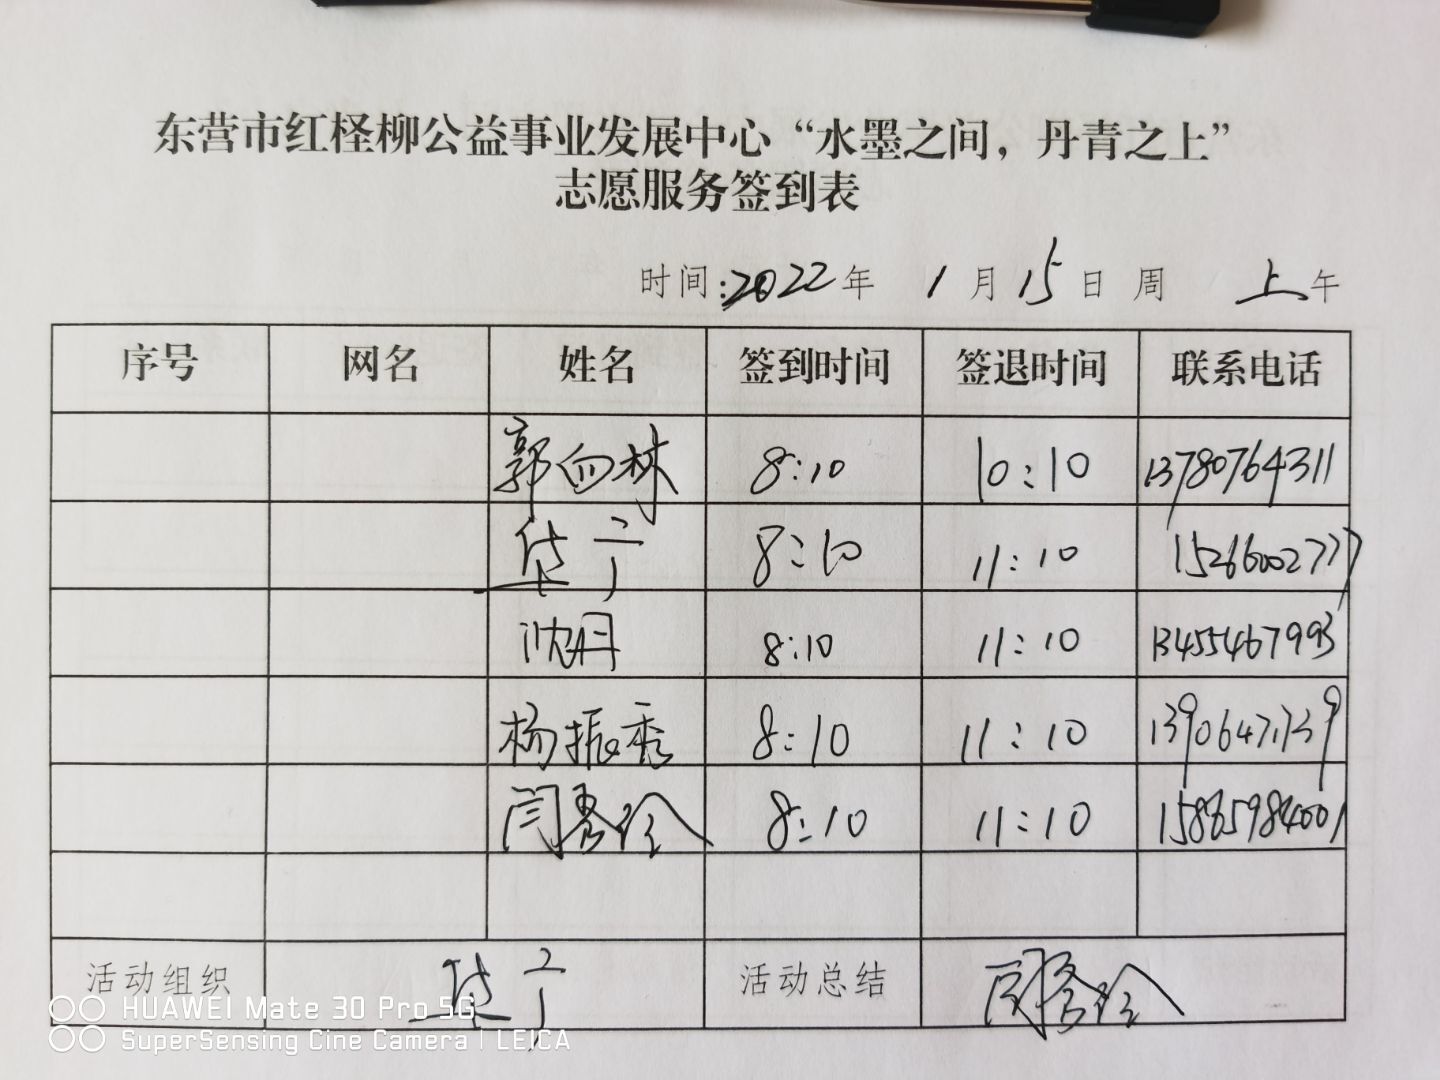 东营市红柽柳公益事业发展中心“水墨之间，丹青之上”
志愿服务签到表
时间:2022年 1月15日 周 上午
序号 网名 姓名 签到时间 签退时间 联系电话
郭向林 8:10 10:10 13780764311
8:10 11:10 15266002777
沈丹 8:10 11:10 13455467993
杨振秀 8:10 11:10
闫秀玲 8:10 11:10
活动组织 活动总结 闫秀玲
HUAWEI Mate 30 Pro 5G
SuperSensing Cine Camera | LEICA